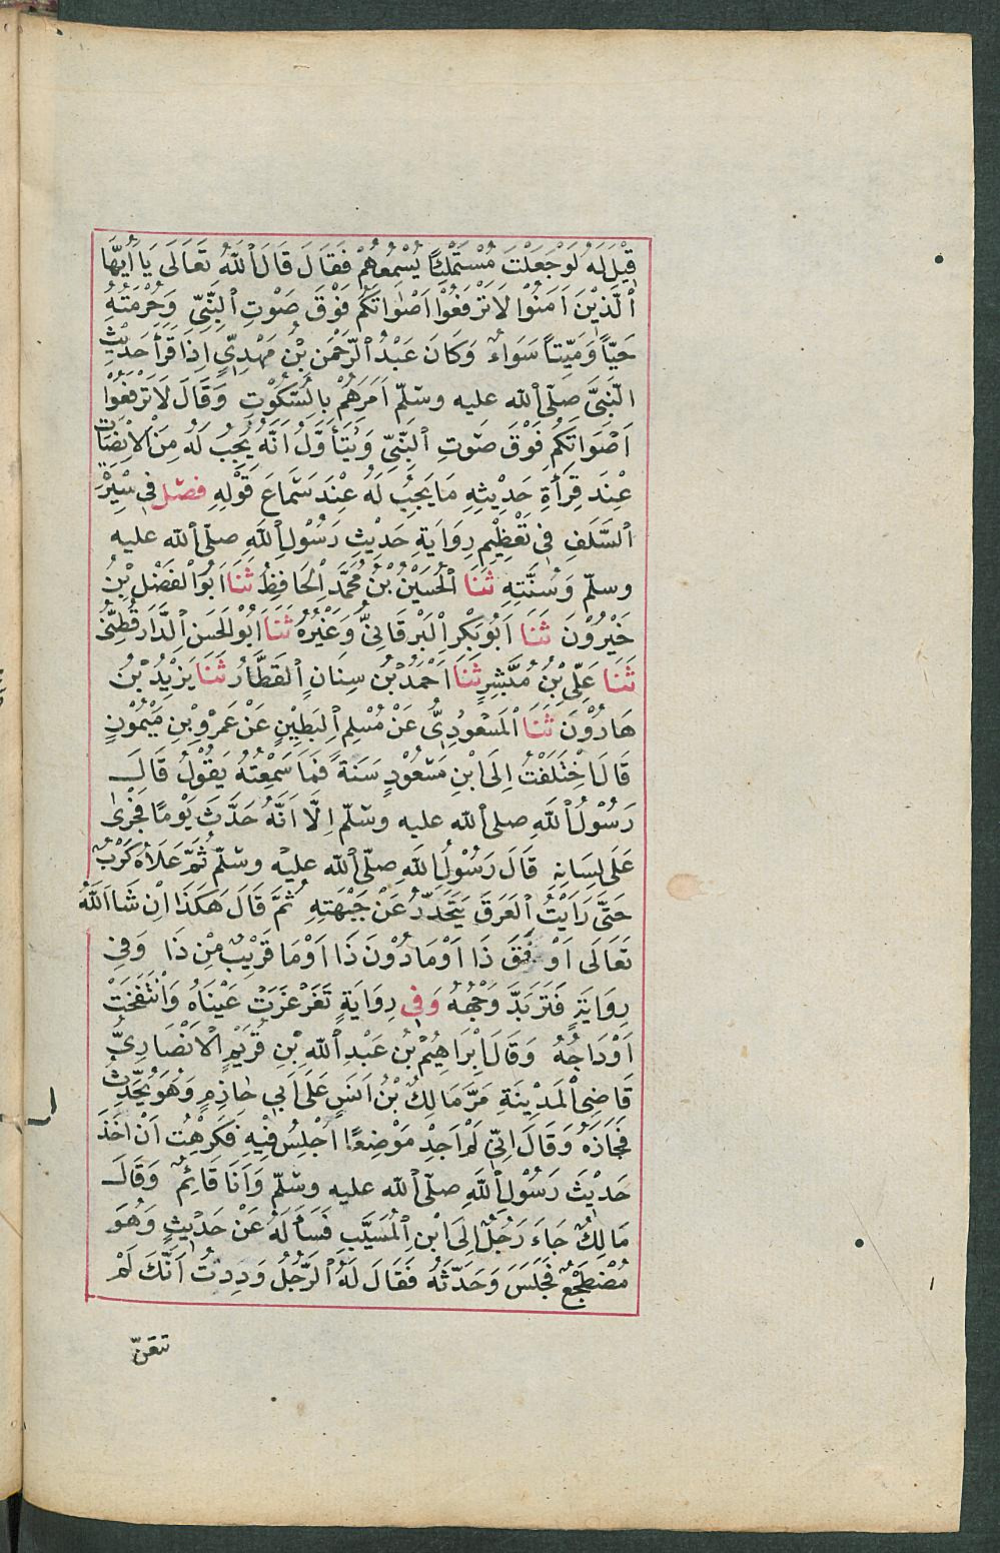 قِيْلَ لَهُ لَوْجَعَلْتَ مُسْتَمْلِيًا يُسْمِعُهُمْ فَقَالَ قَالَ اللّٰهُ تَعَالَى يَا اَيُّهَا
الَّذِيْنَ اٰمَنُوْا لَا تَرْفَعُوْا اَصْوَاتَكُمْ فَوْقَ صَوْتِ النَّبِيِّ وَحُرْمَتُهُ
حَيًّا وَمَيِّتًا سَوَاءٌ وَكَانَ عَبْدُ الرَّحْمٰنِ بْنُ مَهْدِيٍّ اِذَا قَرَأَ حَدِيْثَ
النَّبِيِّ صَلّى الله عليه وسَلّم اَمَرَهُمْ بِالسُّكُوْتِ وَقَالَ لَا تَرْفَعُوْا
اَصْوَاتَكُمْ فَوْقَ صَوْتِ النَّبِيِّ وَيَتَأَوَّلُ اَنَّهُ يَجِبُ لَهُ مِنَ الْاِنْصَاتِ
عِنْدَ قِرَأَةِ حَدِيْثِهِ مَا يَجِبُ لَهُ عِنْدَ سَمَاعِ قَوْلِهِ فصل فِي سِيْرَ
السَّلَفِ فِي تَعْظِيْمِ رِوَايَةِ حَدِيْثِ رَسُوْلِ اللّٰهِ صلّى الله عليه
وسلّم وَسُنَّتِهِ ثَنَا الْحُسَيْنُ بْنُ مُحَمَّدِ الْحَافِظُ ثَنَا اَبُو الْفَضْلِ بْنُ
خَيْرُوْنَ ثَنَا اَبُوْبَكْرِ الْبَرْقَانِيُّ وَغَيْرُهُ ثَنَا اَبُو الْحَسَنِ الدَّارَقُطْنِيُّ
ثَنَا عَلِيُّ بْنُ مُبَشِّرٍ ثَنَا اَحْمَدُ بْنُ سِنَانِ الْقَطَّارُ ثَنَا يَزِيْدُ بْنُ
هَارُوْنَ ثَنَا الْمَسْعُوْدِيُّ عَنْ مُسْلِمِ الْبَطِيْنِ عَنْ عَمْرِو بْنِ مَيْمُوْنٍ
قَالَ اخْتَلَفْتُ اِلَى ابْنِ مَسْعُوْدٍ سَنَةً فَمَا سَمِعْتُهُ يَقُوْلُ قَالَ
رَسُوْلُ اللّٰهِ صلى الله عليه وسَلّم اِلَّا اَنَّهُ حَدَّثَ يَوْمًا فَجَرٰى
عَلٰى لِسَانِهِ قَالَ رَسُوْلُ اللهِ صلّى الله عليه وسَلّم ثُمَّ عَلَاهُ كَرْبٌ
حَتّٰى رَاَيْتُ الْعَرَقَ يَتَحَدَّرُ عَنْ جَبْهَتِهِ ثُمَّ قَالَ هٰكَذَا اِنْ شَاءَ اللّٰهُ
تَعَالَى اَوْ فَوْقَ ذَا اَوْ مَا دُوْنَ ذَا اَوْ مَا قَرِيْبٌ مِنْ ذَا وَفِي
رِوَايَةٍ فَتَرَبَّدَ وَجْهُهُ وَفِي رِوَايَةٍ تَغَرْغَرَتْ عَيْنَاهُ وَانْتَفَخَتْ
اَوْدَاجُهُ وَقَالَ اِبْرَاهِيْمُ بْنُ عَبْدِ اللّٰهِ بْنِ قُرَيْمِ الْاَنْصَارِيُّ
قَاضِي الْمَدِيْنَةِ مَرَّ مَالِكُ بْنُ اَنَسٍ عَلٰى اَبِي حَازِمٍ وَهُوَ يُحَدِّثُ
فَجَازَهُ وَقَالَ اِنِّي لَمْ اَجِدْ مَوْضِعًا اَجْلِسُ فِيْهِ فَكَرِهْتُ اَنْ اٰخُذَ
حَدِيْثَ رَسُوْلِ اللّٰهِ صلّى الله عليه وسَلّم وَاَنَا قَائِمٌ وَقَالَ
مَالِكٌ جَاءَ رَجُلٌ اِلَى ابْنِ الْمُسَيَّبِ فَسَأَلَهُ عَنْ حَدِيْثٍ وَهُوَ
مُضْطَجِعٌ فَجَلَسَ وَحَدَّثَهُ فَقَالَ لَهُ الرَّجُلُ وَدِدْتُ اَنَّكَ لَمْ
تتعنّ